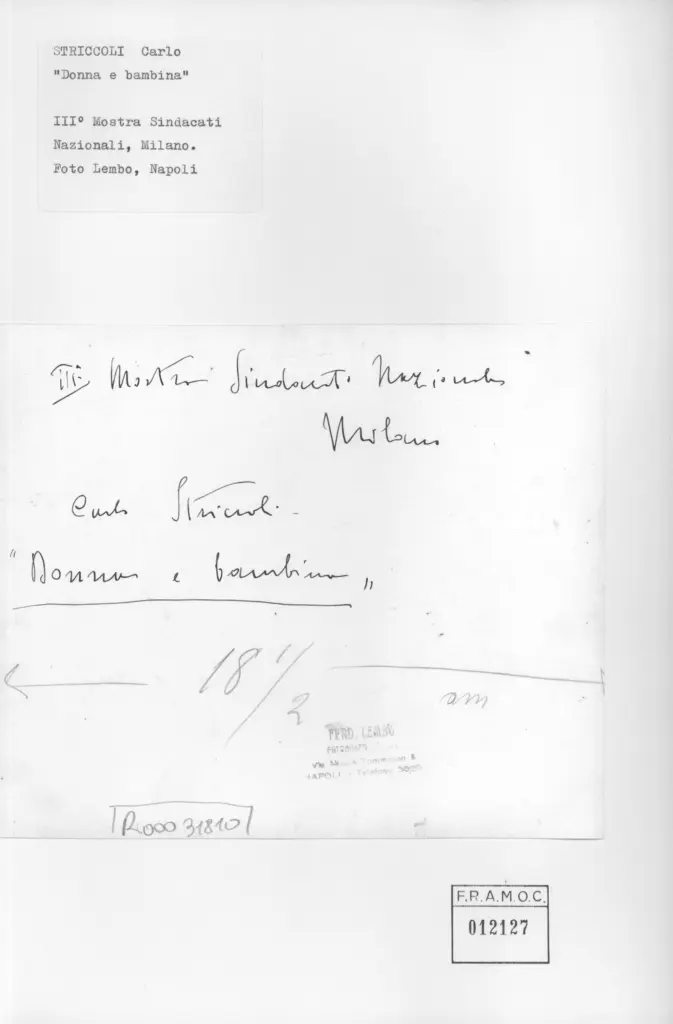 STRICCOLI Carlo
"Donna e bambina"
III° Mostra Sindacati
Nazionali, Milano.
Foto Lembo, Napoli
III Mostra Sindacati Nazionali
Milano
Carlo Striccoli
"Donna e bambina„
18 1/2
FERD. LEMBO
NAPOLI - Telefono
R00031810
F.R.A.M.O.C.
012127